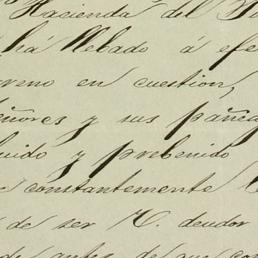 Hacienda del
ha llebado á efe
reno en cuestion,
eñores y sus pañeg
uido y prebenido
constantemente
de ser V. deudor
de antes de que con